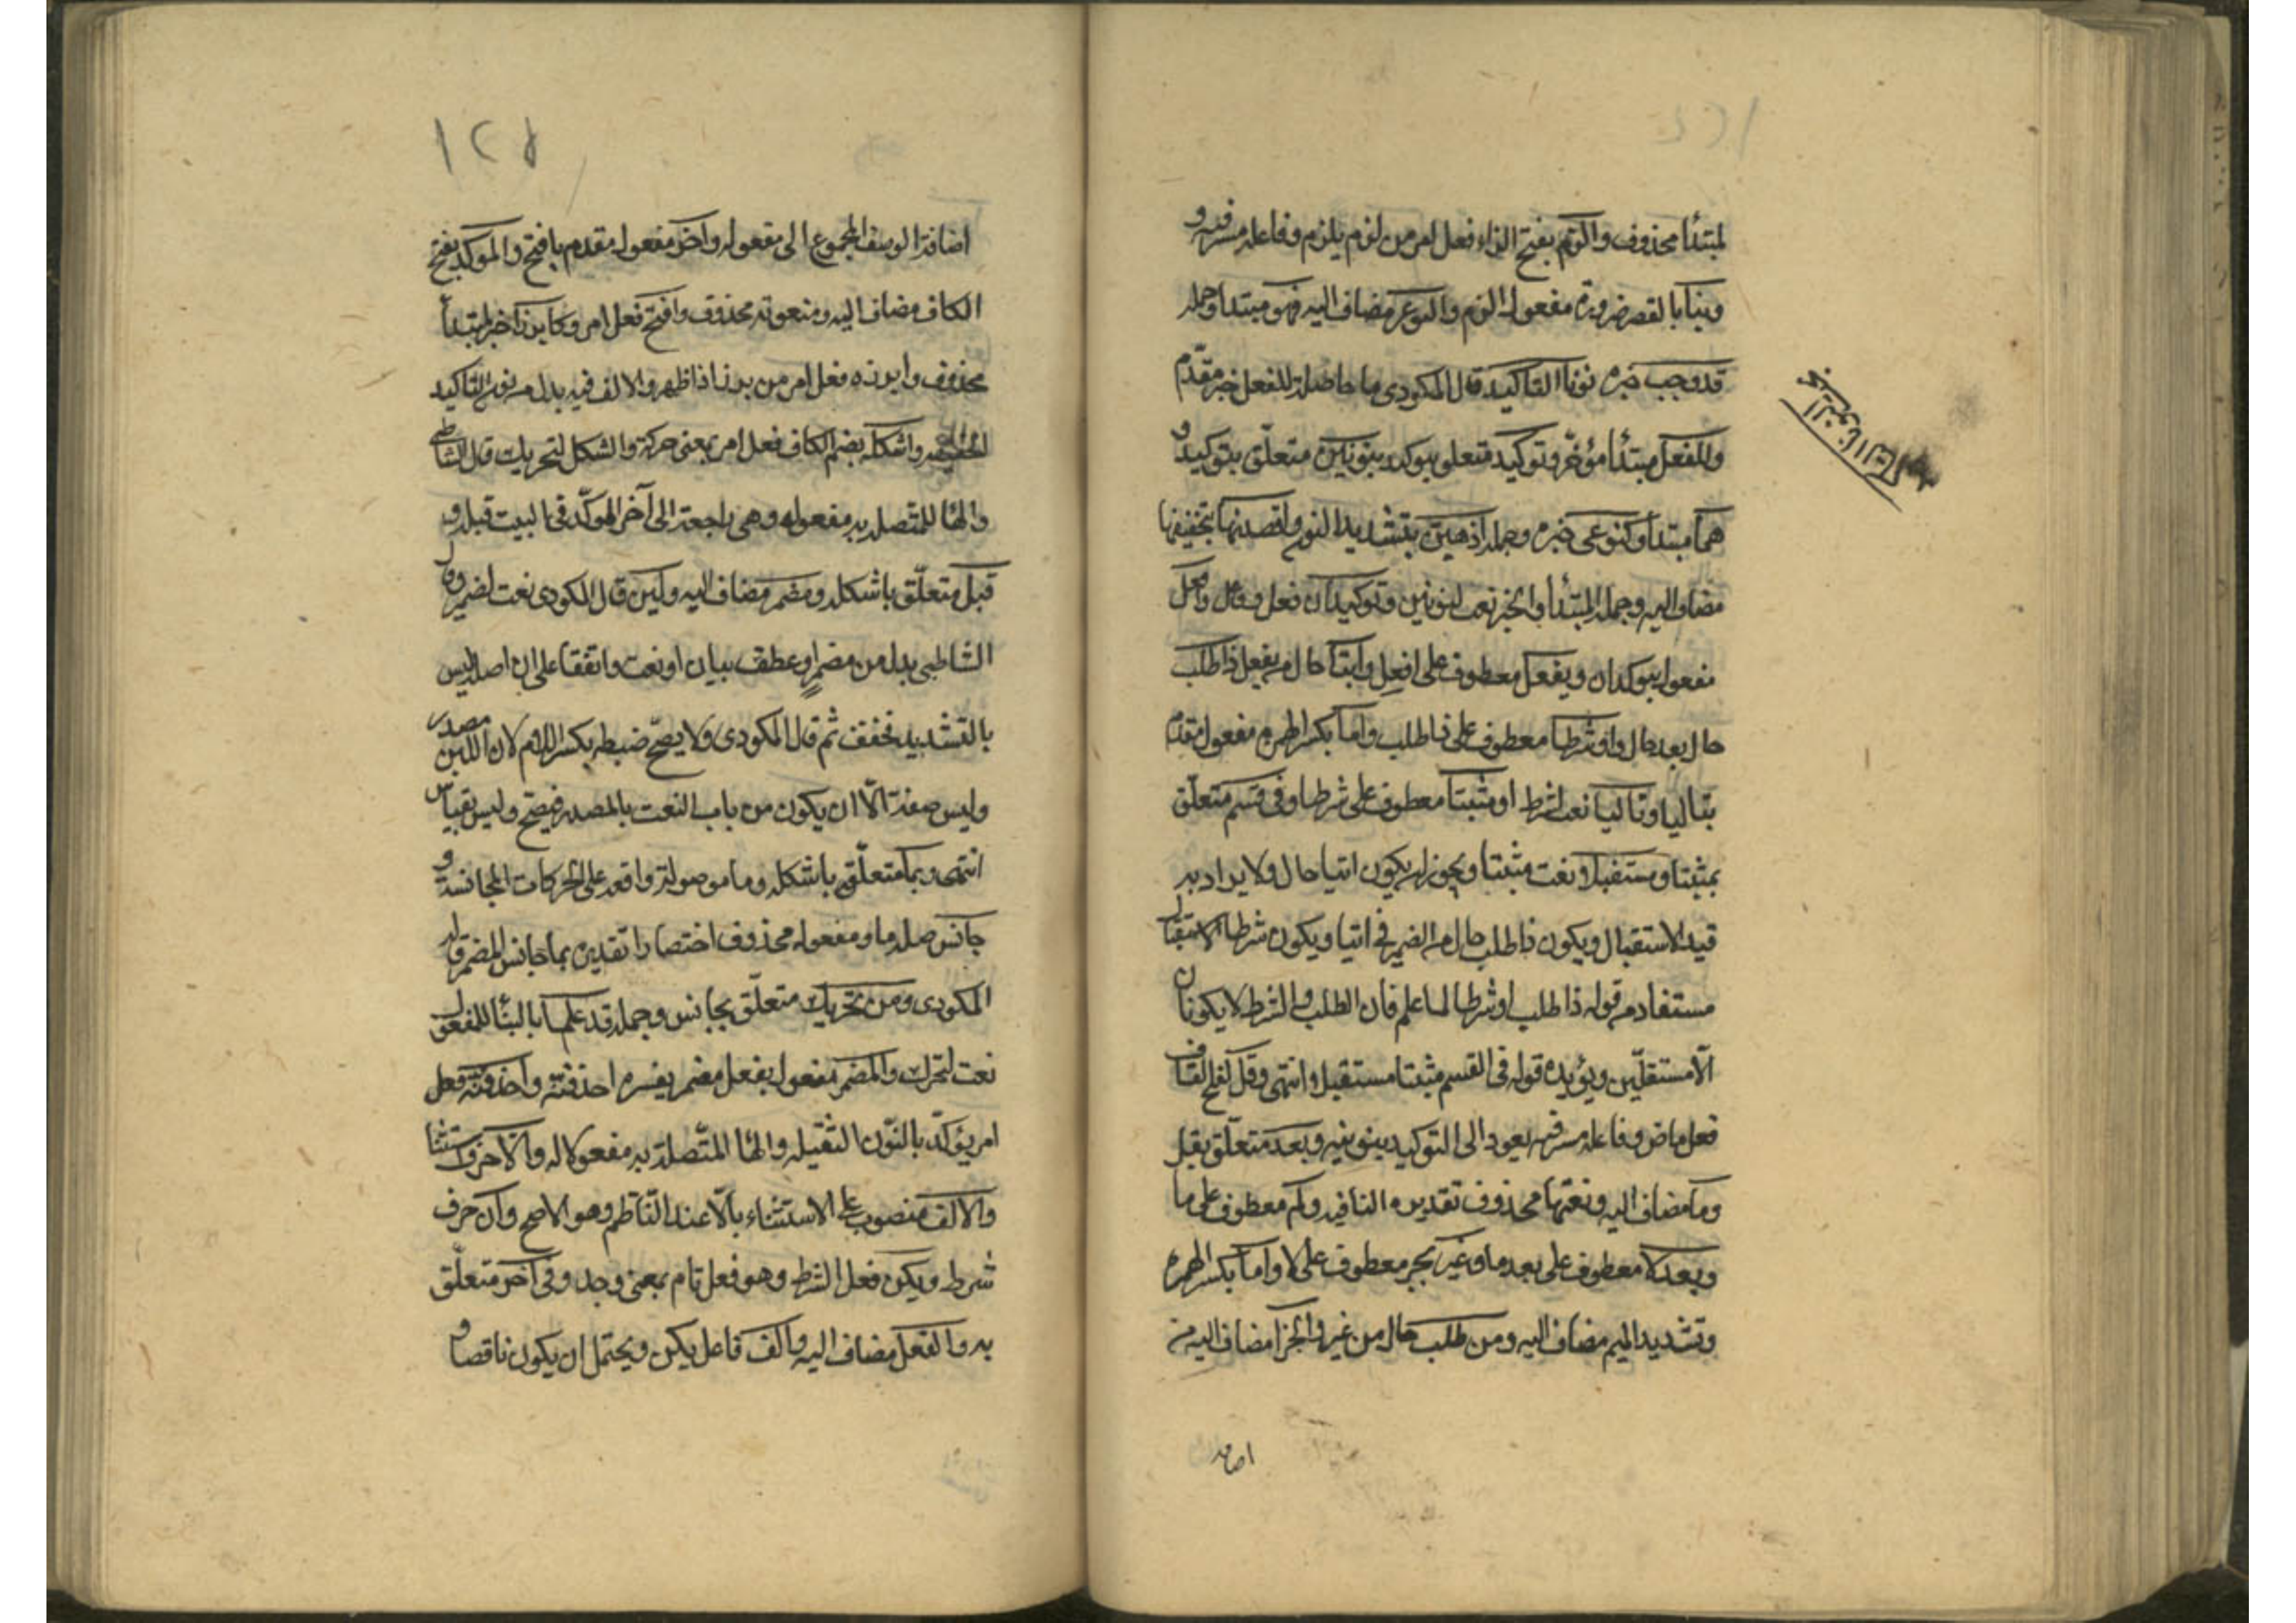 لمبتدأ محذوف والزم بفتح الزاء فعل امر من لزم يلزم وفاعله مستتر فيه و
وبنابا لقصر ضرورة مفعول الزم والنوع مضاف اليه فهو مبتدا وجملة
قد وجب خبره نونا التاكيد قال المكودى ما حاصله للفعل خبر مقدم
وللفعل مبتدأ مؤخر وتوكيد متعلق بيوكد بنونين متعلق بتوكيد و
هما مبتدأ وكنوعى خبره وجملة اذهبن بتشديد النون واقصدنها بتخفيفها
مضاف اليه وجملة المبتدأ والخبر نعت لنونين وتوكيدان فعل وفاعل وافعل
مفعول يوكدان ويفعل معطوف على افعل وآتيا حال من يفعل ذا طلب
حال بعد حال او شرطا معطوف على ذا طلب واما بكسر الهمزة مفعول مقدم
بتاليا وتاليا نعت لشرط او مثبتا معطوف على شرطا وفى قسم متعلق
بمثبتا ومستقبلا نعت مثبتا ويجوز ان يكون اتيا حال ولا يراد به
قيد الاستقبال ويكون ذا طلب حال من الضمير فى اتيا ويكون شرطا الاستقبال
مستفاد من قوله ذا طلب او شرطا لما علم فان الطلب والشرط لا يكونان
الا مستقلين ويؤيده قوله فى القسم مثبتا مستقبلا وانتهى وقل بفتح القاف
فعل ماض وفاعله مستتر فيه يعود الى التوكيد بنونيه وبعد متعلق بقل
وما مضاف اليه ونعتها محذوف تقديره النافيه ولم معطوف على ما
وبعد لا معطوف على بعد ما وغير بجر معطوف على لا واما بكسر الهمزة
وتشديد الميم مضاف اليه ومن طلب حال من غير والجزا مضاف اليه من
اضافة
١٢٥
اضافة الوصف المجموع الى مفعوله وآخر مفعول مقدم بافتح والموكد بفتح
الكاف مضاف اليه ومنعوته محذوف وافتح فعل امر وكابرزا خبر لمبتدأ
محذوف وابرزه فعل امر من برز اذا ظهر والالف فيه بدل من نون التاكيد
الخفيفه واشكله بضم الكاف فعل امر بمعنى حركه والشكل لتحريك قال الشاطبى
والها المتصله به مفعوله وهى راجعة الى آخر الموكد فى البيت قبله و
قبل متعلق باشكله ومضمر مضاف اليه ولين قال المكودى نعت لضمر وقال
الشاطبى بدل من مضمر او عطف بيان او نعت واتفقا على ان اصله ليس
بالتشديد فخفف ثم قال المكودى ولا يصح ضبطه بكسر اللام لان اللين مصدر
وليس صفة الا ان يكون من باب النعت بالمصدر فيصح وليس بقياس
انتهى وبما متعلق باشكله وما موصولة واقعه على الحركات المجانسة و
جانس صله ما ومفعوله محذوف اختصارا تقديره بما جانس المضمر قاله
المكودى ومن تحريك متعلق بجانس وجملة قد علما بالبنأ للمفعول
نعت لتحرك والمضمر مفعول بفعل مضمر يفسره احذفنه واحذفنه فعل
امر يؤكد بالنون الثقيله والها المتصلة به مفعولا له والا حرف استثنا
والالف منصوب على الاستثناء بالا عند الناظم وهو الاصح وان حرف
شرط ويكن فعل الشرط وهو فعل تام بمعنى وجد وفى آخر متعلق
به والفعل مضاف اليه والف فاعل يكن ويحتمل ان يكون ناقصا و